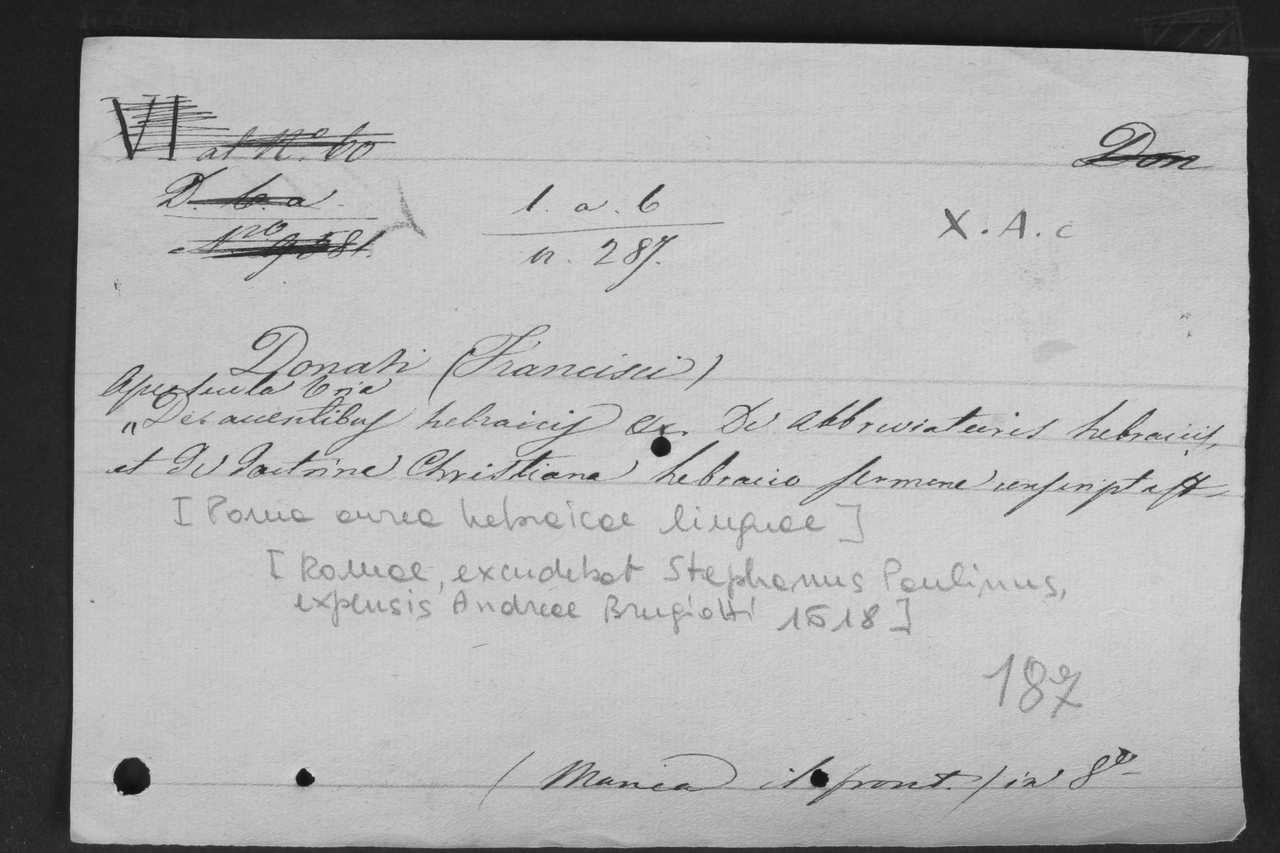 VI al N.º 60
Don
D. b. a
1. a. b
X. A. c
Nº 9581.
n. 287.
Donati (Francisci)
Opuscula tria
„De accentibus hebraicis &. De abbreviaturis hebraicis,
et De doctrina Christiana hebraico sermone conscripta &
[Poma aurea hebraicae linguae]
[Romae, excudebat Stephanus Paulinus,
expensis Andreae Brugiotti 1618]
187
(Manca il front.) in 8º